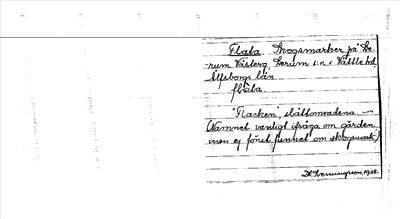 Flata. Skogsmarker på Le-
rum Västerg, Lerum s:n i Vättle hd
Älfsborgs län
flata.
"Flacken", slättområdena.—
(Namnet vanligt ifråga om gärden
men ej förut funnet om skogsmark)
1928.